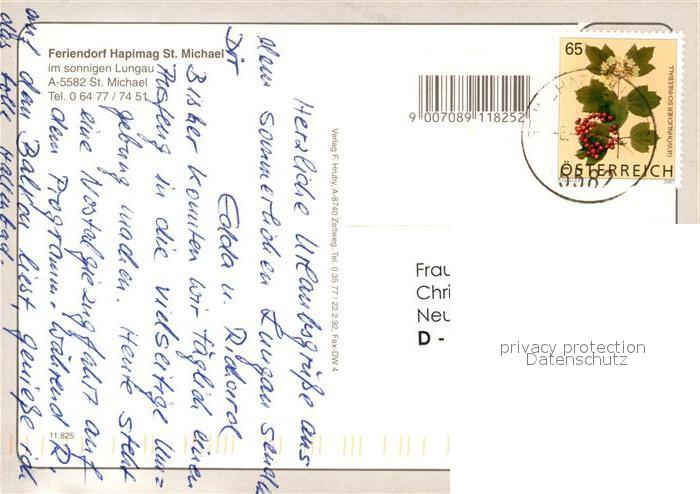 Feriendorf Hapimag St. Michael
im sonnigen Lungau
A-5582 St. Michael
Tel. 0 64 77 / 74 51
9 007089 118252
65
GEWÖHNLICHER SCHNEEBALL
ÖSTERREICH
2007
5582
Verlag F. Hruby, A-8740 Zeltweg, Tel. 0 35 77 / 22 2 92, Fax-DW 4
Herzliche Urlaubsgrüße aus
dem sommerlichen Lungau senden
Dir Edda u. Richard
Bisher konnten wir täglich einen
Ausflug in die vielseitige Um=
gebung machen. Heute steht
eine Nostalgiezugfahrt auf
dem Programm. Während R.
auf dem Balkon liest, genieße ich
das tolle Hallenbad.
Frau
Chri
Neu
D -
privacy protection
Datenschutz
11.825